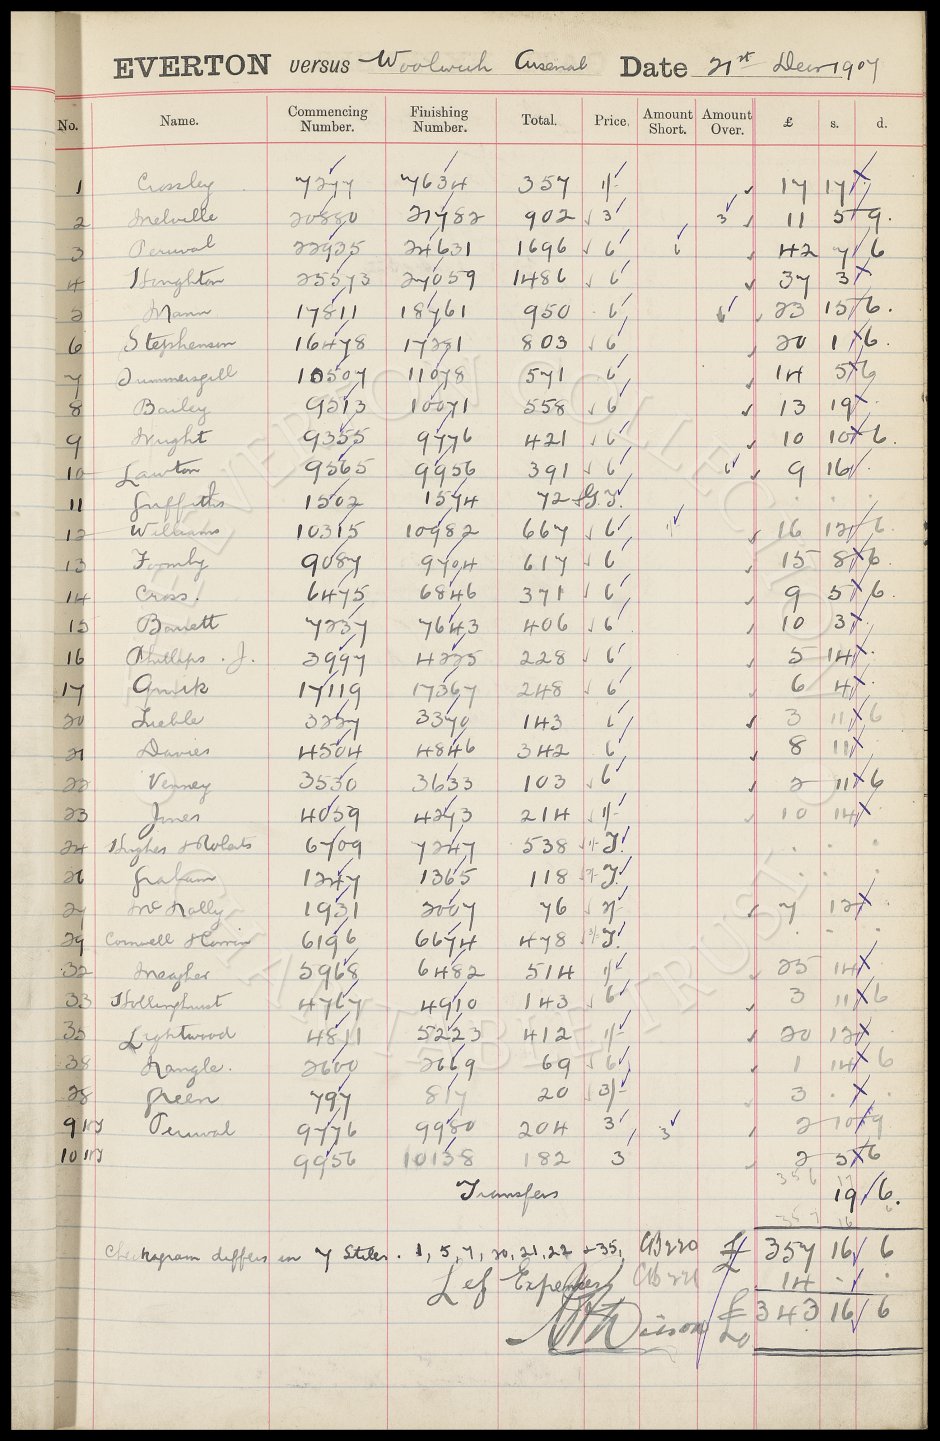 EVERTON versus Woolwich Arsenal Date 21st Decr 1907
No. Name. Commencing Number. Finishing Number. Total. Price. Amount Short. Amount Over. £ s. d.
1 Crossley 7277 7634 357 1/- 17 17 .
2 Melville 20880 21782 902 3 3 11 5 9.
3 Percival 22935 24631 1696 6 6 42 7 6
4 Houghton 25573 27059 1486 6 37 3
5 Mann 17811 18761 950 6 23 15 6.
6 Stephenson 16478 17281 803 6 20 1 6.
7 Summersgill 10507 11078 571 6 14 5 6
8 Bailey 9513 10071 558 6 13 19 .
9 Wright 9355 9776 421 6 10 10 6.
10 Lawton 9565 9956 391 6 6 9 16 .
11 Griffiths 1502 1574 72 G.T. . . .
12 Williams 10315 10982 667 6 16 12 6
13 Formby 9087 9704 617 6 15 8 6.
14 Cross. 6475 6846 371 6 9 5 6.
15 Barrett 7237 7643 406 6 10 3 .
16 Phillips . J. 3997 4225 228 6 5 14 .
17 17119 17367 248 6 6 4 .
20 Lieble 3227 3370 143 6 3 11 6
21 Davies 4504 4846 342 6 8 11
22 Venney 3530 3633 103 6 2 11 6
23 Jones 4059 4273 214 1/- 10 14 .
24 Hughes & Roberts 6709 7247 538 1/- T. . . .
26 Graham 1247 1365 118 T. . . .
27 McNally 1931 2007 76 2/- 7 12 .
29 Cornwell & 6196 6674 478 T. . . .
32 Meagher 5968 6482 514 1/- 25 14
33 Hollinghurst 4767 4910 143 6 3 11 6
35 Lightwood 4811 5223 412 1/- 20 12 .
38 Nangle. 2600 2669 69 6 1 14 6
28 Green 797 817 20 3/- 3 . .
9 Percival 9776 9980 204 3 3 2 10 9
10 9956 10138 182 3 2 5 6
356 17
Transfers 19/6.
357 16 6
Checkagram differs in 7 Stiles. 1, 5, 7, 20, 21, 22 & 35, CB 220 £ 357 16 6
Less Expenses CB 221 14 - .
Wilson £ 343 16 6
EVERTON COLLECTION
CHARITABLE TRUST